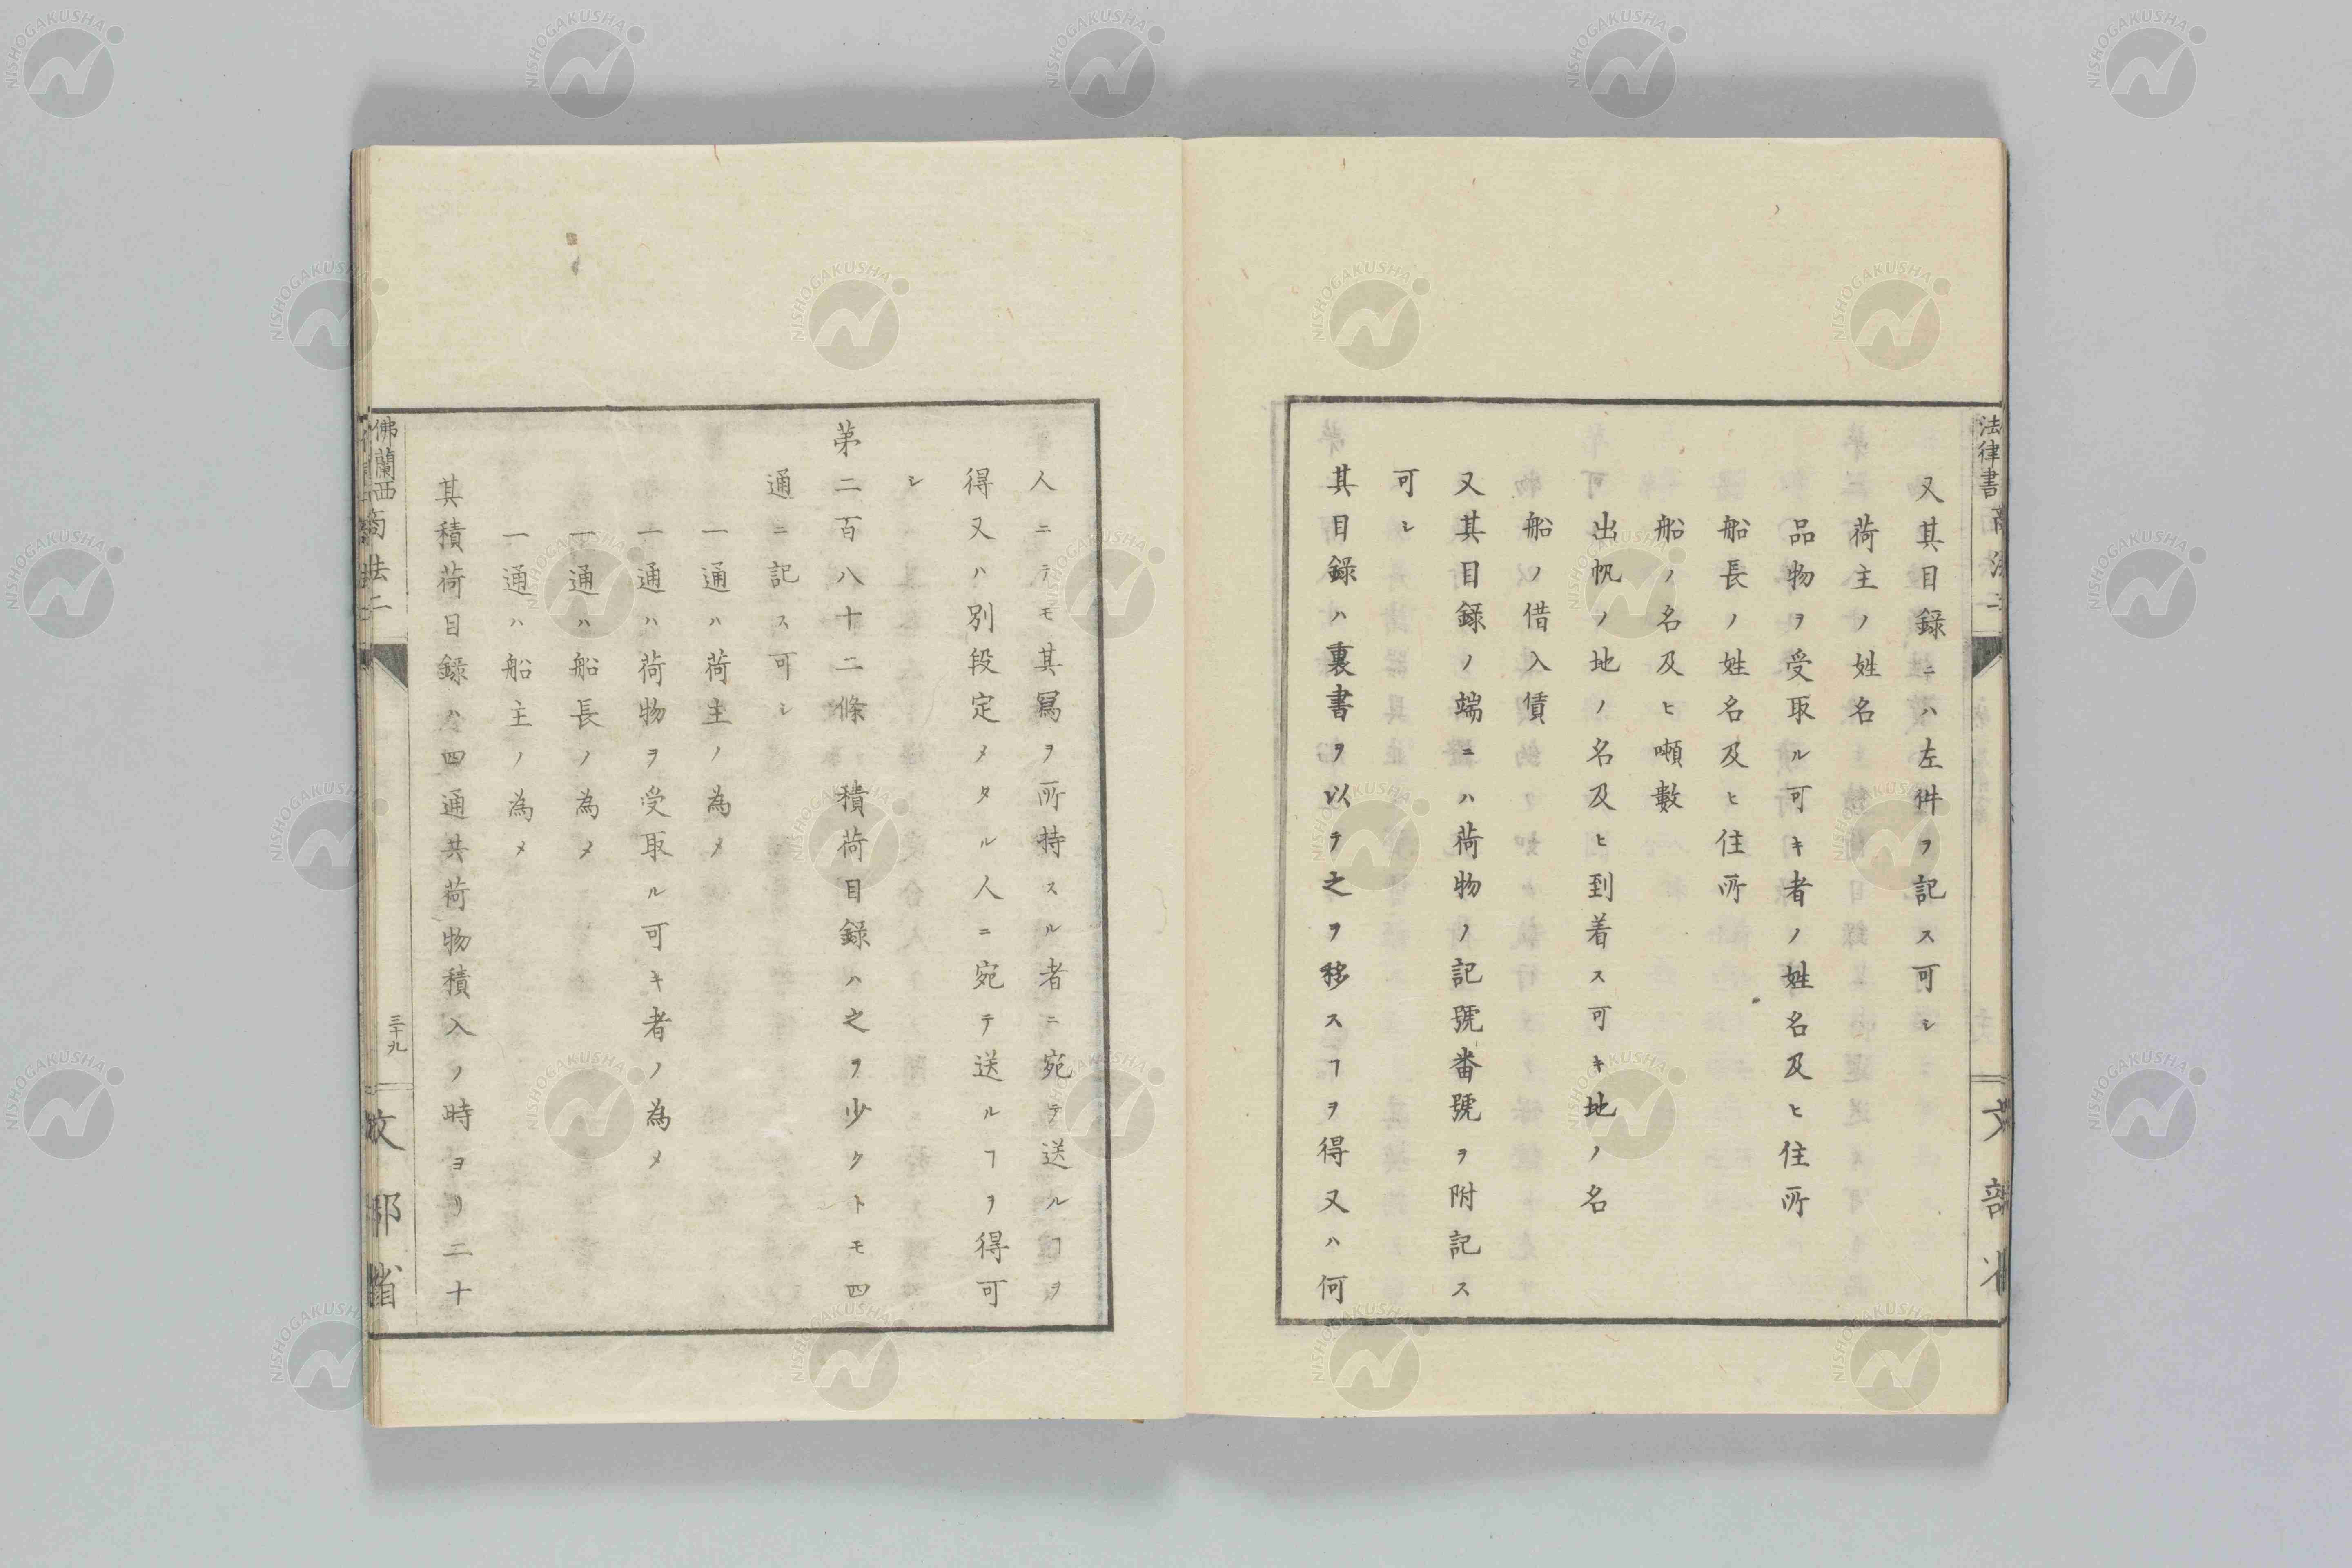 又其目録ニハ左件ヲ記ス可シ
荷主ノ姓名
品物ヲ受取ル可キ者ノ姓名及ヒ住所
船長ノ姓名及ヒ住所
船ノ名及ヒ噸數
出帆ノ地ノ名及ヒ到着ス可キ地ノ名
船ノ借入賃
又其目録ノ端ニハ荷物ノ記號畨號ヲ附記ス
可シ
其目録ハ裏書ヲ以テ之ヲ移スヿヲ得又ハ何
人ニテモ其寫ヲ所持スル者ニ宛テ送ルヿヲ
得又ハ別段定メタル人ニ宛テ送ルヿヲ得可
シ
苐二百八十二條 積荷目録ハ之ヲ少クトモ四
通ニ記ス可シ
一通ハ荷主ノ為メ
一通ハ荷物ヲ受取ル可キ者ノ為メ
一通ハ船長ノ為メ
一通ハ船主ノ為メ
其積荷目録ハ四通共荷物積入ノ時ヨリ二十
佛蘭西商法二
三十九
文部省
法律書
NISHOGAKUSHA